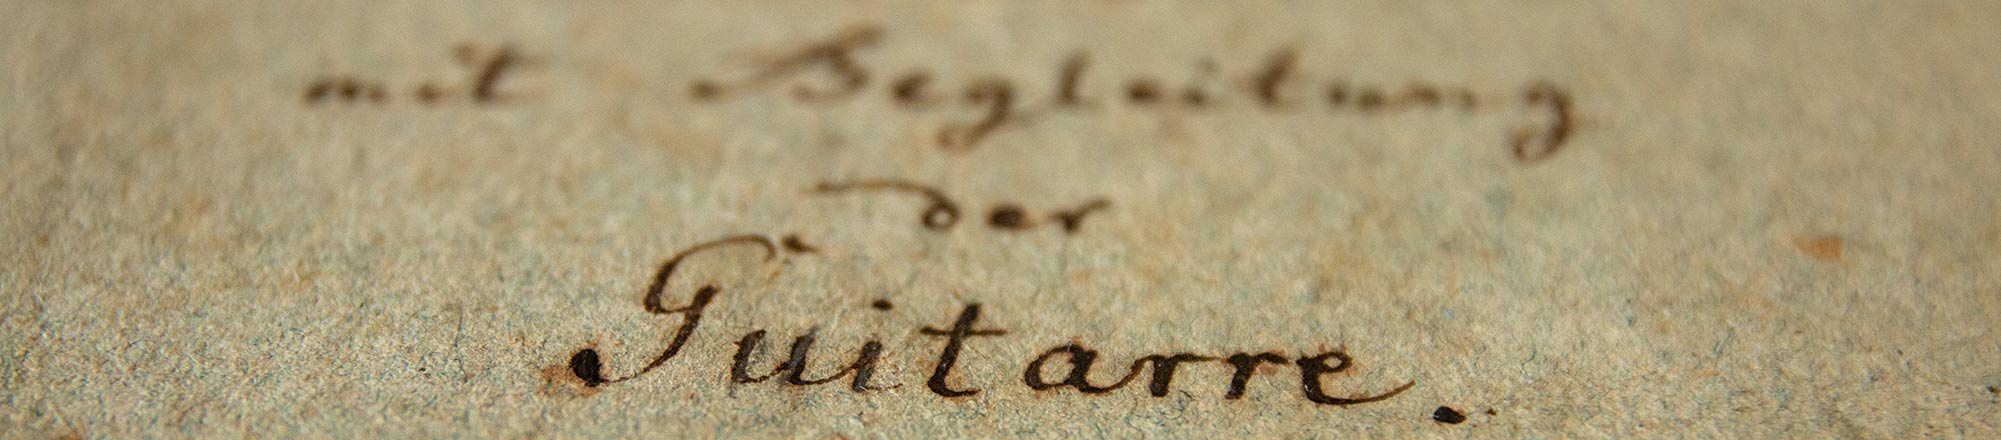 mit Begleitung
der
Guitarre.